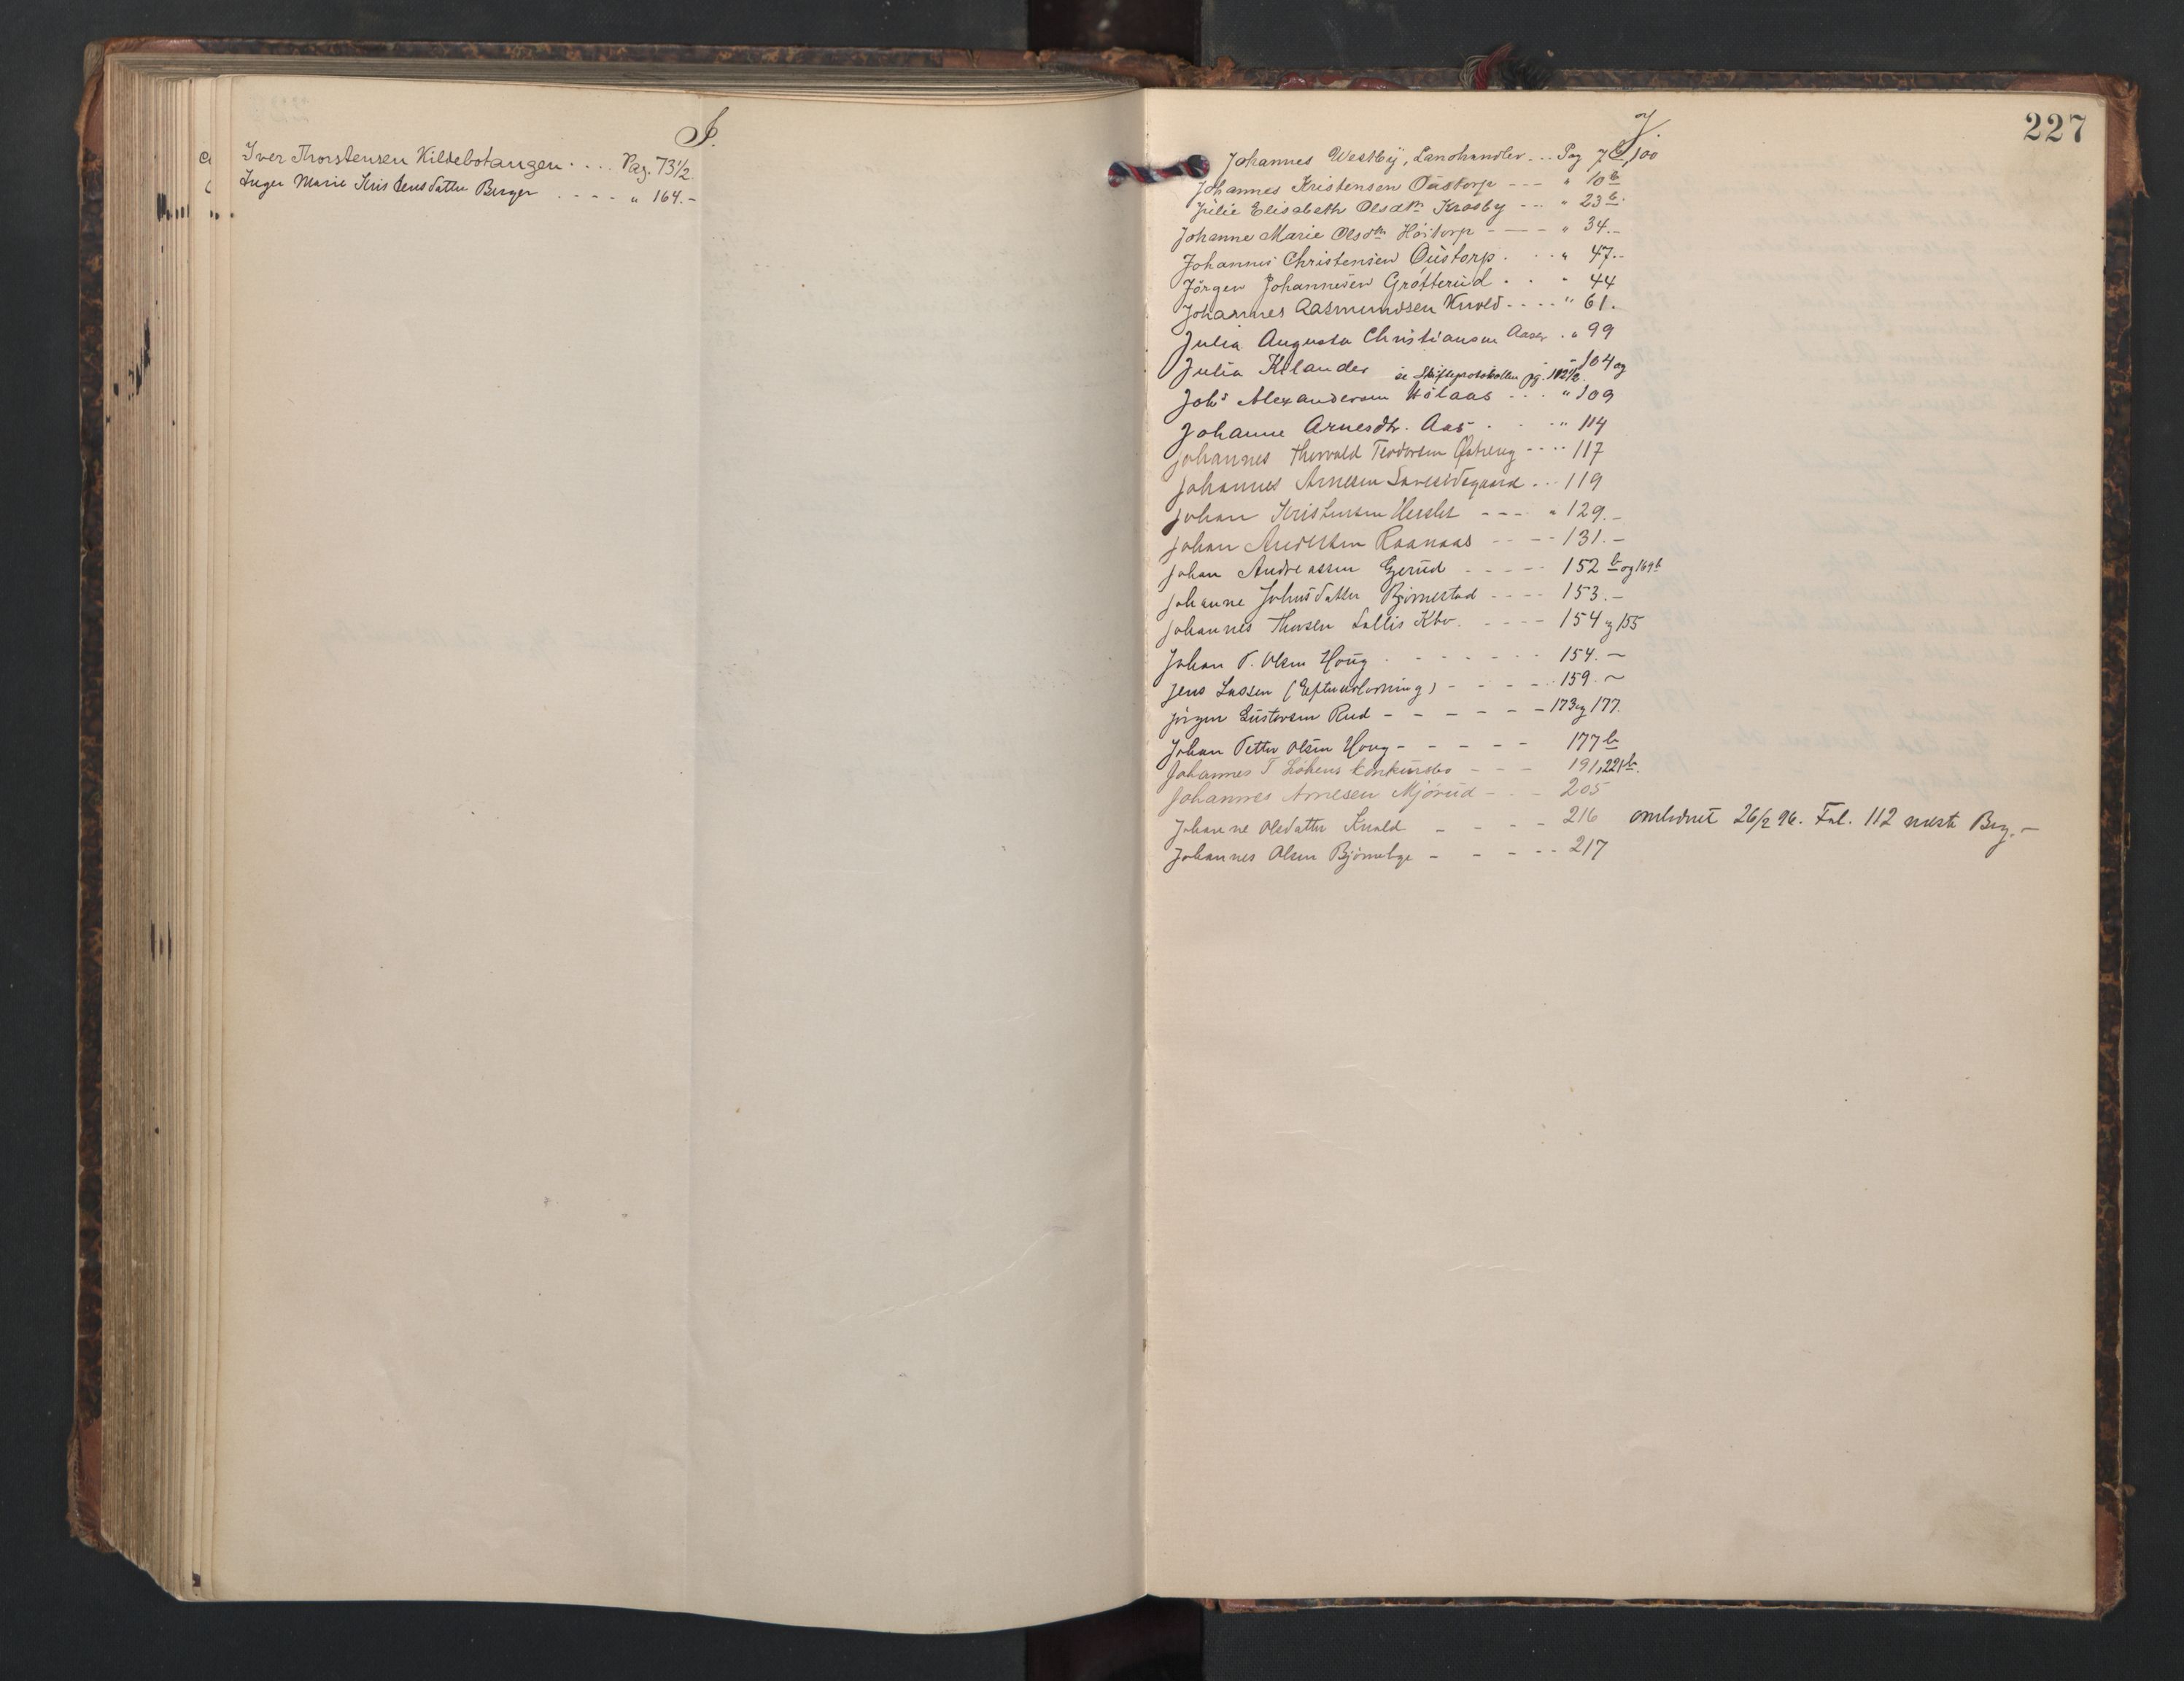 I.
Iver Thorstensen Kildebotangen . . . . Pag. 73 1/2.
Inger Marie Kristensdatter Berger . . . . " 164.-
227
J.
Johannes Westby, Landhandler . . . Pag 7b, 100
Johannes Kristensen Oustorp - - - " 10b
Julie Elisabeth Olsdtr Krosby - - - " 23b.
Johanne Marie Olsdtr Höitorp - - - " 34.-
Johannes Christensen Oustorp . . . " 47.-
Jörgen Johannesen Grötterud . . . 44
Johannes Aasmundsen Kvold - - - - " 61.
Julia Augusta Christiansen Aaser . " 99
Julia Kilander - " 104 og
se Skifteprotokollen pg. 102 1/2.
Johs Alexandersen Holaas . . . " 109
Johanne Arnesdtr. Aas . . . " 114
Johannes Thorvald Teodorsen - - - - 117
Johannes Arnesen . . . 119
Johan Kristensen Herslet - - - " 129.-
Johan Andersen Raanaas - - - - 131.-
Johan Andreassen Gerud - - - - - 152 b og 169b
Johanne Johnsdatter Björnestad - - - - 153.-
Johannes Thorsen Sallis Kbo. - - - - 154 og 155
Johan P. Olsen Houg . - - - - - - 154. ~
Jens Lassen (Efterutlodning) - - - - 159. ~
Jörgen Gustavsen Rud - - - - - - 173 og 177.
Johan Petter Olsen Houg - - - - - 177b
Johannes T Lökens konkursbo - - - 191, 221b.
Johannes Arnesen Mjörud - - - 205
Johanne Olsdatter Kvold - - - - 216 omlednet 26/2 96. Fol. 112 næste Reg. -
Johannes Olsen Björnebye - - - - - 217